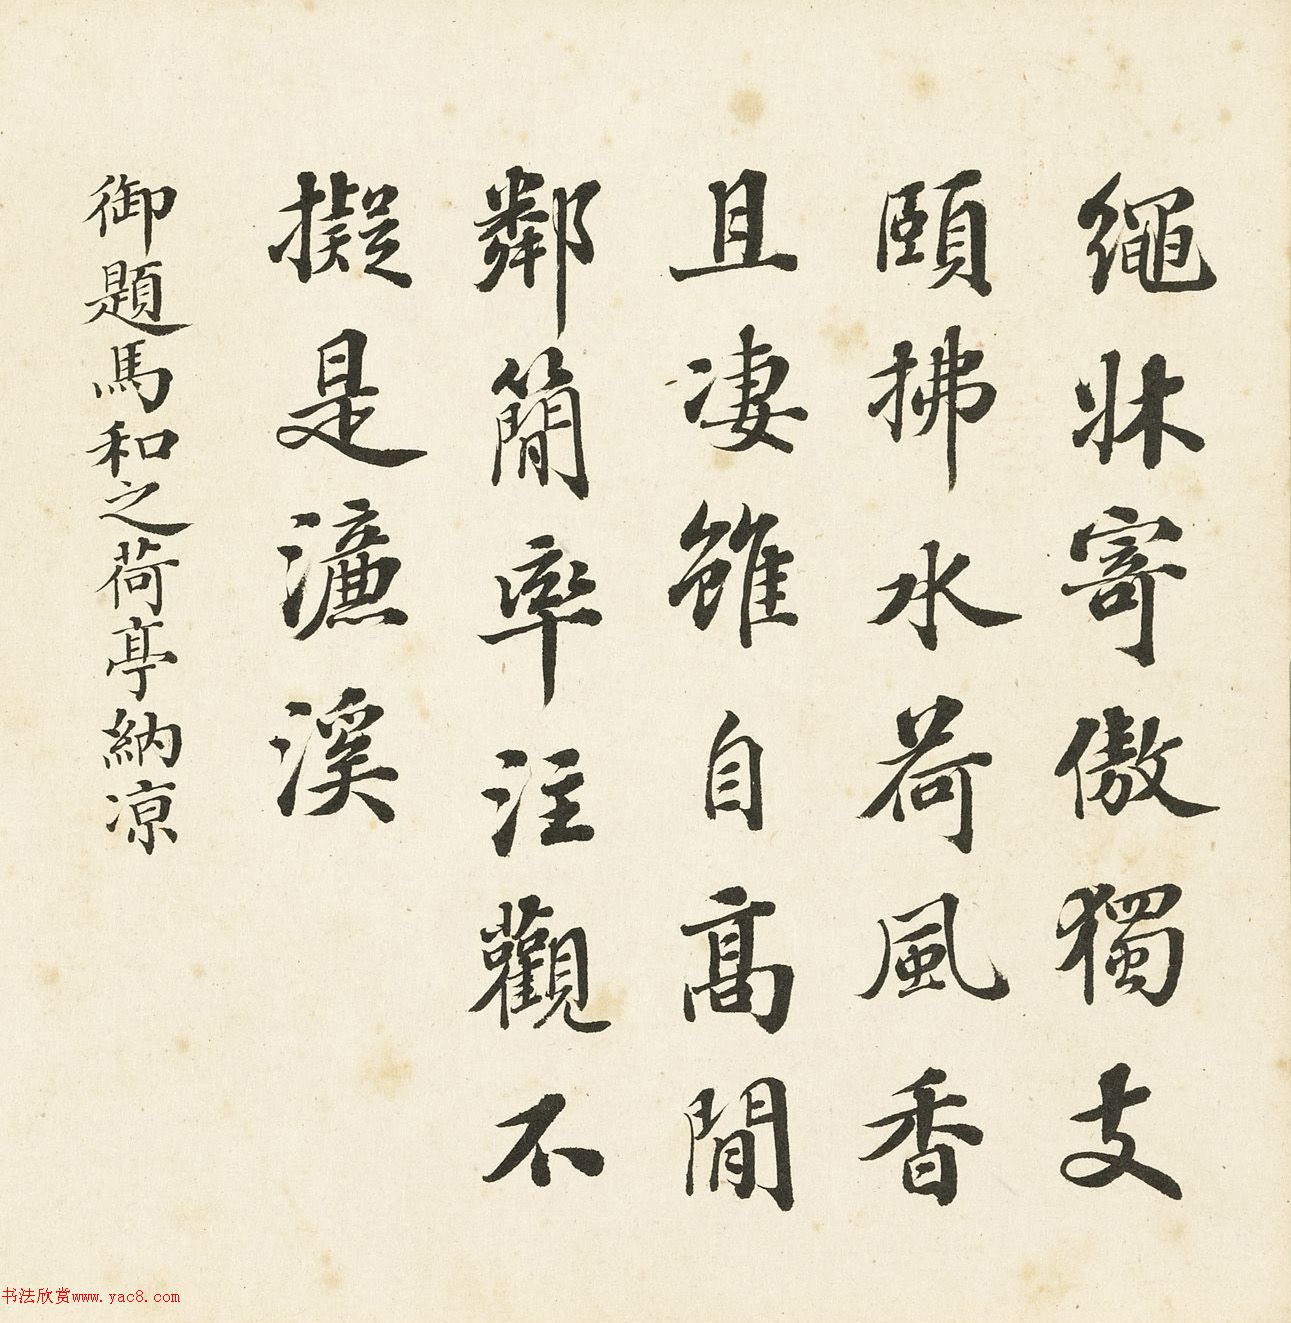 繩牀寄傲獨支
頤拂水荷風香
且凄雖自高閒
鄰簡率注觀不
擬是濂溪
御題馬和之荷亭納凉
书法欣赏www.yac8.com